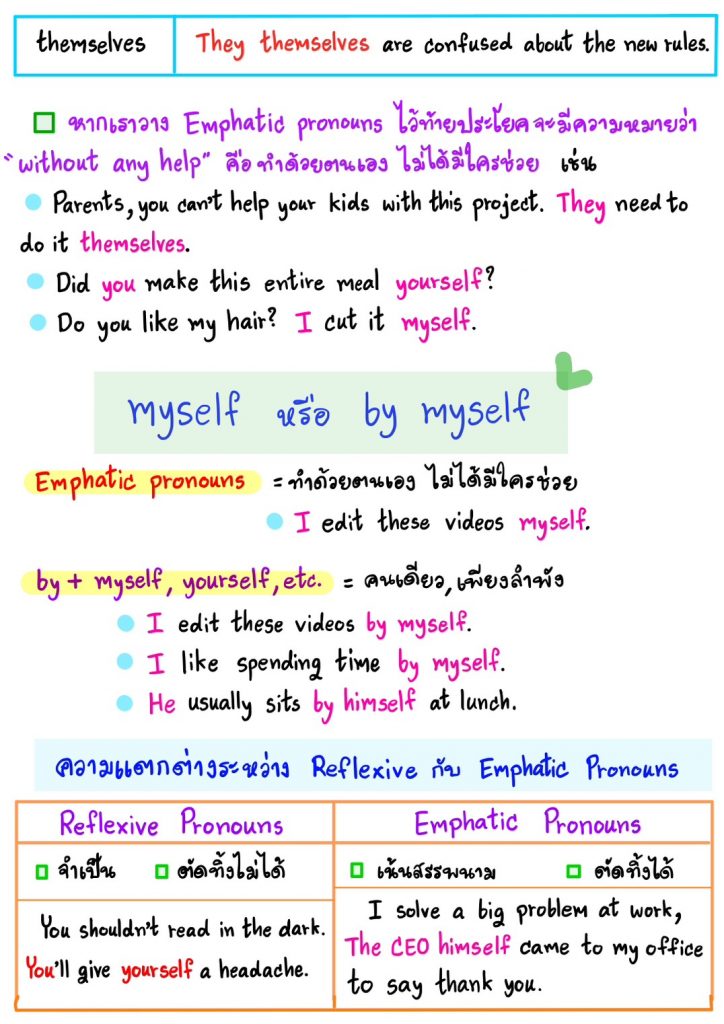 themselves They themselves are confused about the new rules.
หากเราวาง Emphatic pronouns ไว้ท้ายประโยคจะมีความหมายว่า
"without any help" คือ ทำด้วยตนเอง ไม่ได้มีใครช่วย เช่น
Parents, you can't help your kids with this project. They need to
do it themselves.
Did you make this entire meal yourself?
Do you like my hair? I cut it myself.
myself หรือ by myself
Emphatic pronouns = ทำด้วยตนเอง ไม่ได้มีใครช่วย
I edit these videos myself.
by + myself, yourself, etc. = คนเดียว, เพียงลำพัง
I edit these videos by myself.
I like spending time by myself.
He usually sits by himself at lunch.
ความแตกต่างระหว่าง Reflexive กับ Emphatic Pronouns
Reflexive Pronouns
จำเป็น ตัดทิ้งไม่ได้
You shouldn't read in the dark.
You'll give yourself a headache.
Emphatic Pronouns
เน้นสรรพนาม ตัดทิ้งได้
I solve a big problem at work,
The CEO himself came to my office
to say thank you.